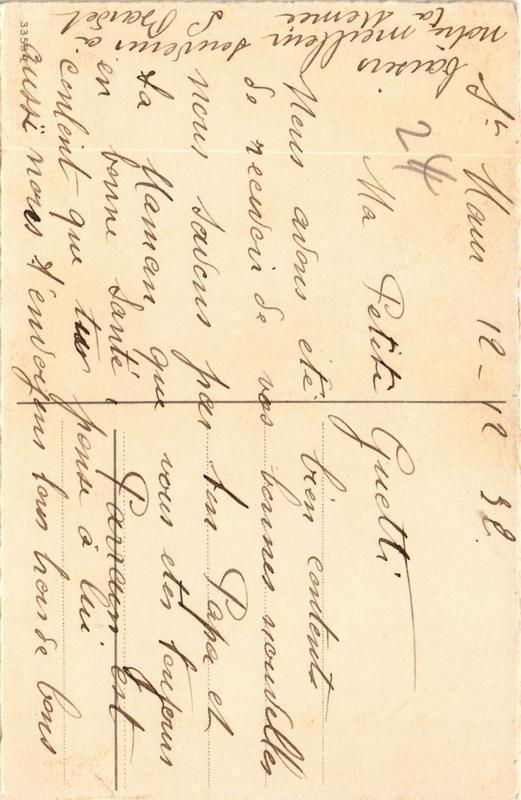 St Maur 12-12 32.
24
Ma Petite Guetti
Nous avons été bien contents
de recevoir de vos bonnes nouvelles
nous savons par ton Papa et
ta Maman que vous etes toujours
en bonne Santé, Parrain est
content que tu pense à lui
aussi nous t'envoyons tous trois de bons
baisers
notre meilleur souvenir à
ta
335